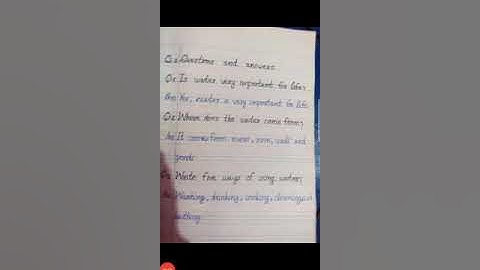 Q: Questions and answers
Q: Is water very important for life?
Ans Yes, water is very important for life.
Q: Where does the water come from?
Ans It comes from river, rain, wells and
ponds
Q: Write five ways of using water?
Washing, drinking, cooking, cleaning